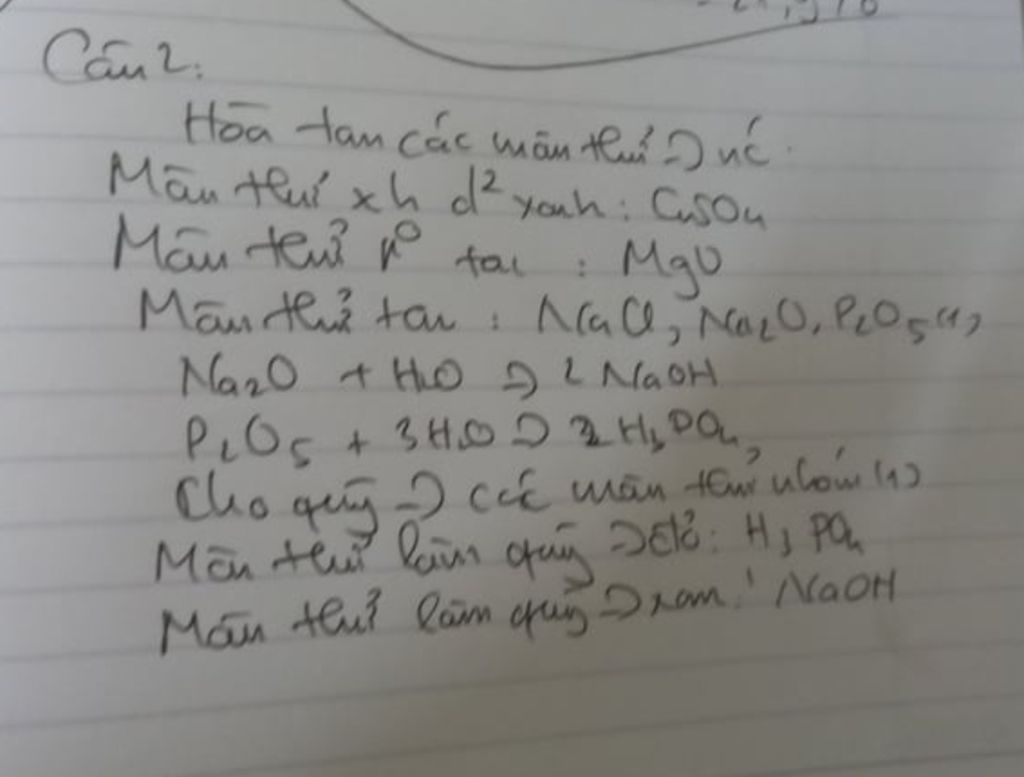 Câu 2:
Hòa tan các mẫu thử => nc
Mẫu thử xh d² xanh : CuSO4
Mẫu thử k⁰ tan : MgO
Mẫu thử tan : NaCl, Na2O, P2O5 (1)
Na2O + H2O => 2 NaOH
P2O5 + 3H2O => 2 H3PO4
Cho quỳ => các mẫu thử nhóm (1)
Mẫu thử làm quỳ => đỏ: H3PO4
Mẫu thử làm quỳ => xanh: NaOH